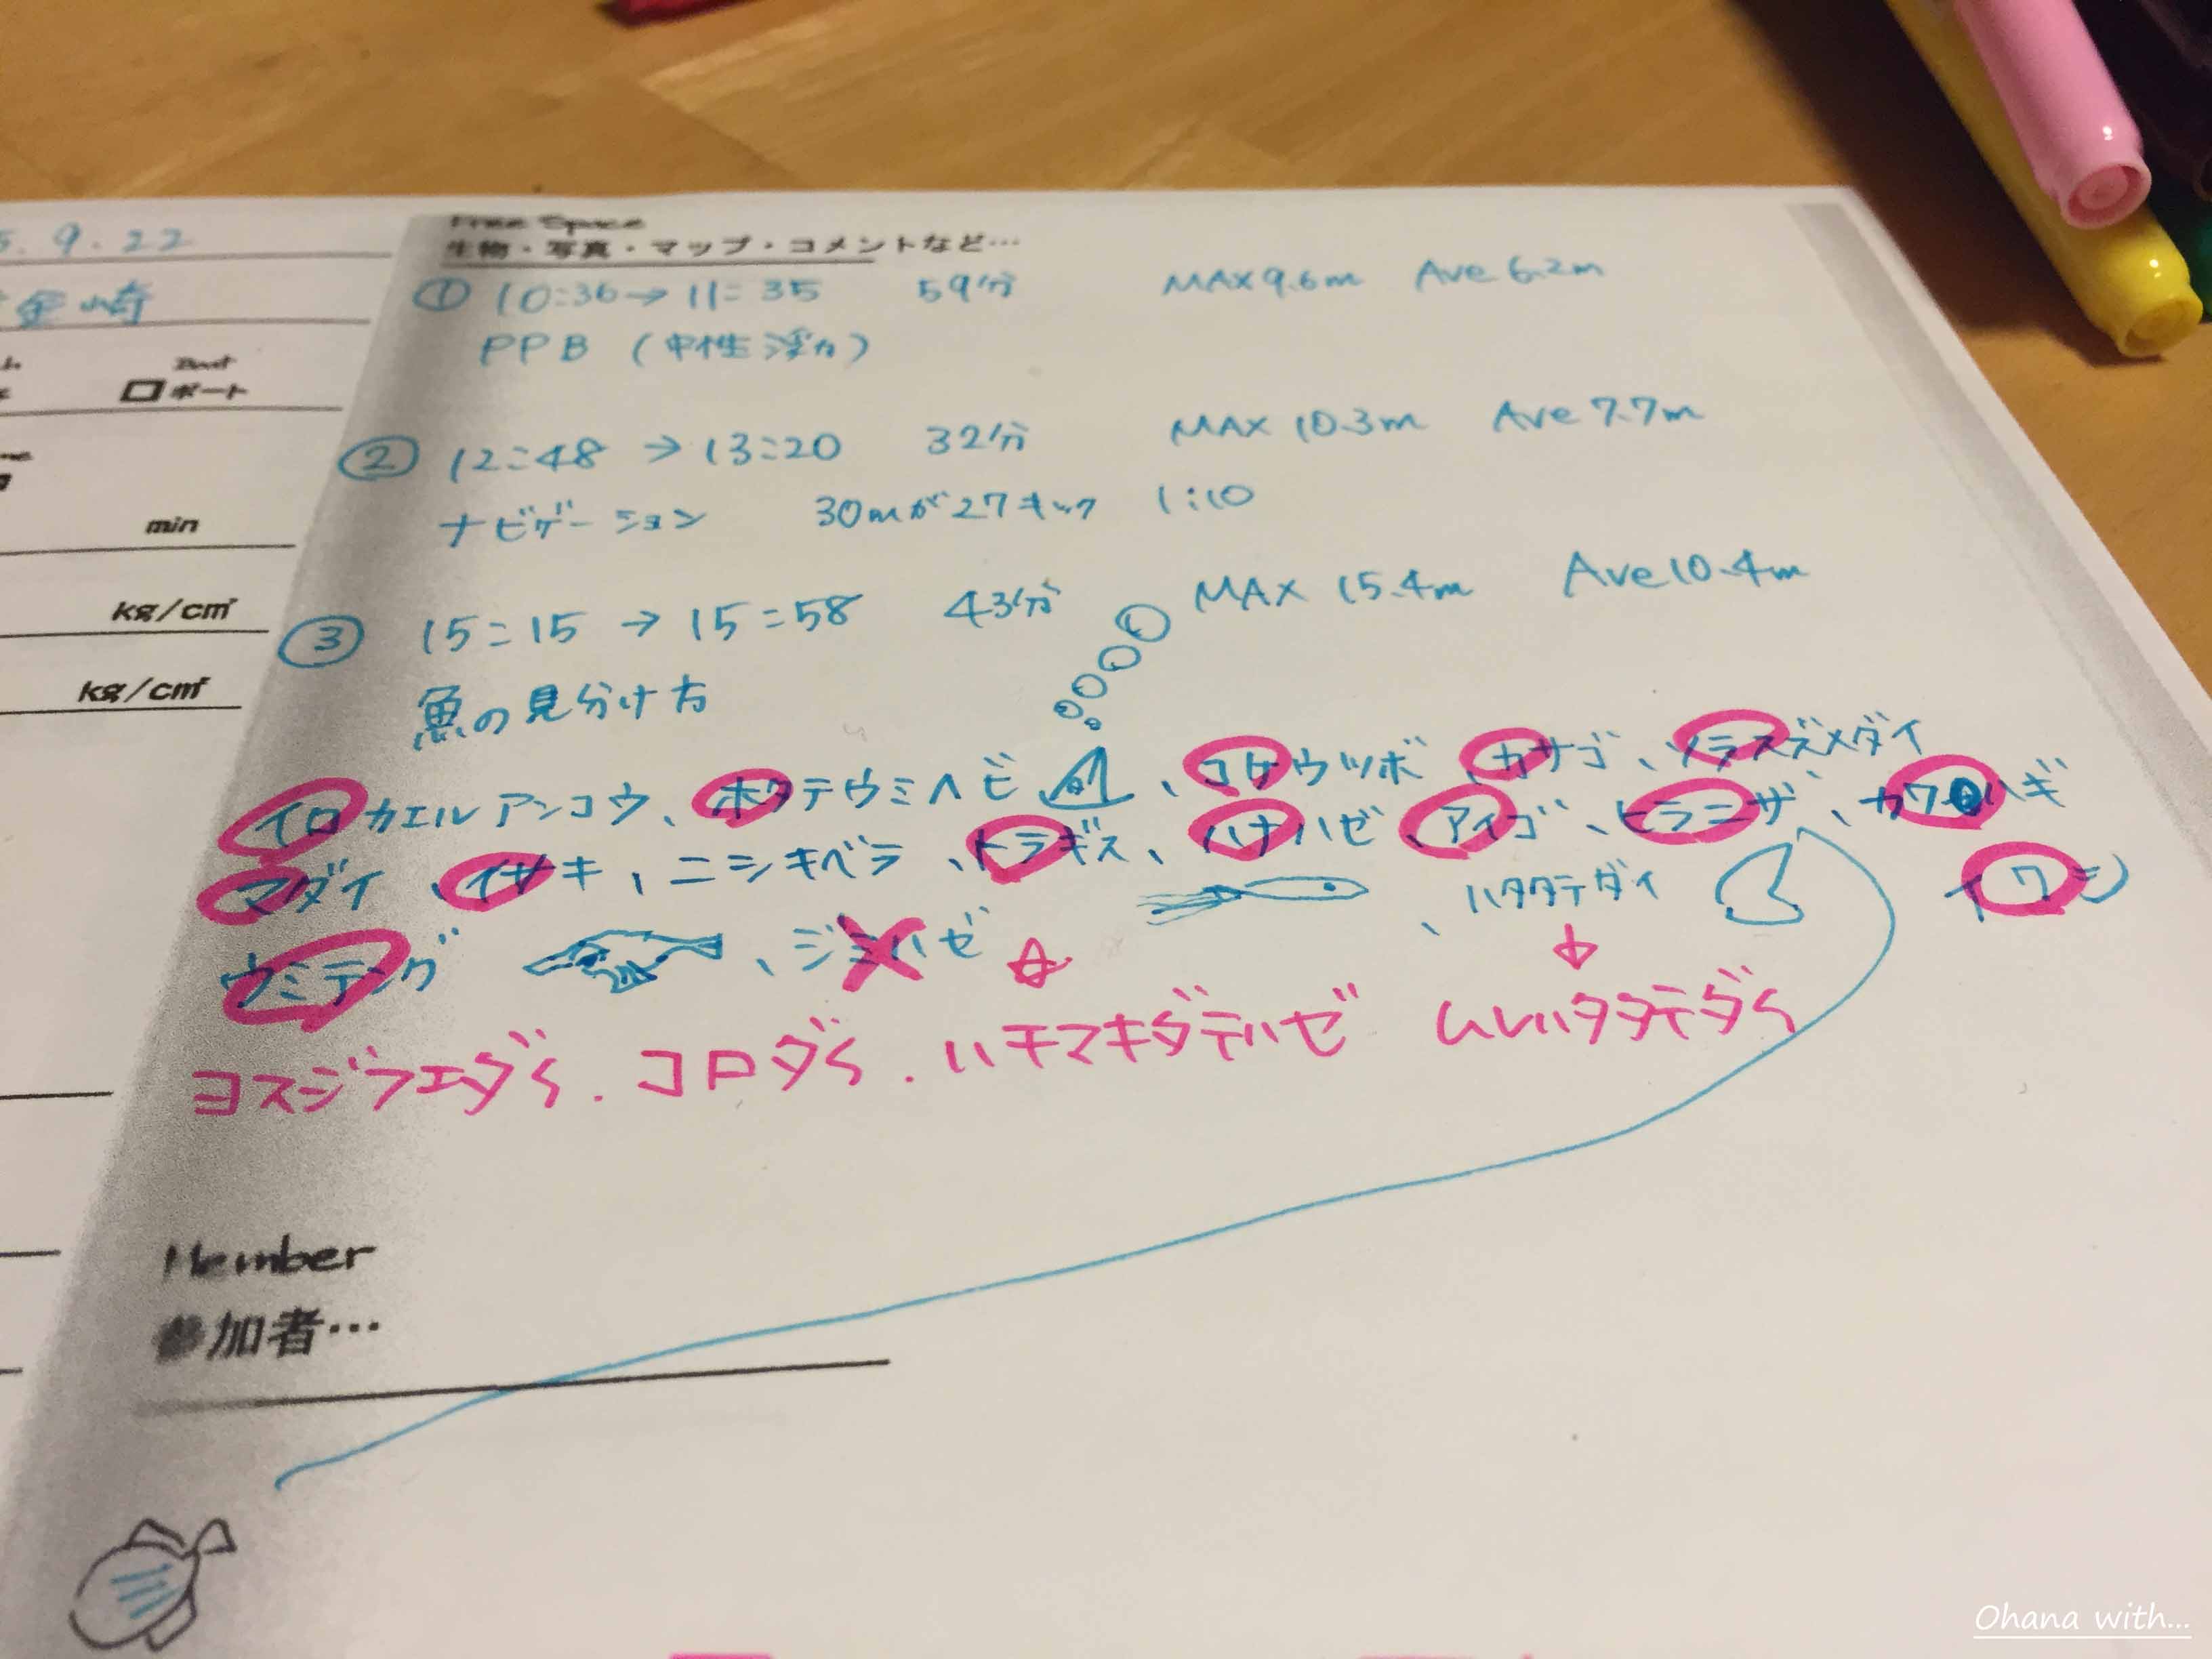 5.9.22
金崎
Boat
ボート
min
kg/cm²
kg/cm²
Free Space
生物・写真・マップ・コメントなど…
① 10:36→11:35 59分 MAX9.6m Ave6.2m
PPB (中性浮力)
② 12:48→13:20 32分 MAX 10.3m Ave7.7m
ナビゲーション 30mが27キック 1:10
③ 15:15→15:58 43分 MAX 15.4m Ave10.4m
魚の見分け方
イロカエルアンコウ、ホタテウミヘビ、コケウツボ、カサゴ、ソラスズメダイ
マダイ、イサキ、ニシキベラ、トラギス、ハナハゼ、アイゴ、ヒラニザ、カワハギ
ウミテング、ジミハゼ、ハタタテダイ イワシ
ヨスジフエダイ.コロダイ.ハチマキダテハゼ ムレハタタテダイ
Member
参加者…
Ohana with...